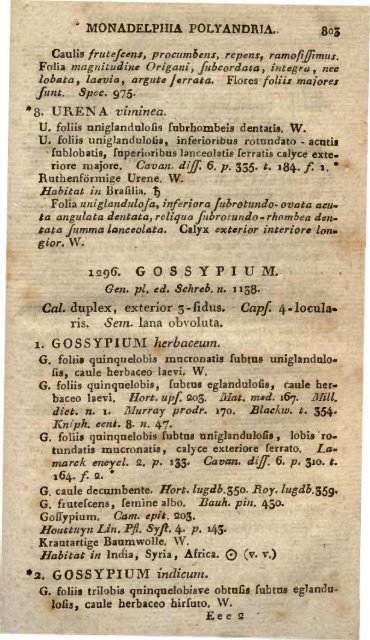 MONADELPHIA POLYANDRIA. 803
Caulis frutefcens, procumbens, repens, ramofiſſimus.
Folia magnitudine Origani, ſubcordata, integra, nec
lobata, laevia, argute ſerrata. Flores foliis majores
ſunt. Spec. 975.
*8. URENA viminea.
U. foliis uniglandulofis fubrhombeis dentatis. W.
U. foliis uniglandulofis, inferioribus rotundato - acutis
fublobatis, fuperioribus lanceolatis ferratis calyce exte-
riore majore. Cavan. diſſ. 6. p. 335. t. 184. f. 1. *
Ruthenförmige Urene. W.
Habitat in Brafilia. ♄
Folia uniglandulofa, inferiora ſubrotundo-ovata acu-
ta angulata dentata, reliqua ſubrotundo-rhombea den-
tata ſumma lanceolata. Calyx exterior interiore lon-
gior. W.
1296. GOSSYPIUM.
Gen. pl. ed. Schreb. n. 1138.
Cal. duplex, exterior 3-fidus. Capſ. 4-locula-
ris. Sem. lana obvoluta.
1. GOSSYPIUM herbaceum.
G. foliis quinquelobis mucronatis fubtus uniglandulo-
fis, caule herbaceo laevi. W.
G. foliis quinquelobis, fubtus eglandulofis, caule her-
baceo laevi. Hort. upſ. 203. Mat. med. 167. Mill.
dict. n. 1. Murray prodr. 170. Blackw. t. 354.
Kniph. cent. 8. n. 47.
G. foliis quinquelobis fubtus uniglandulofis, lobis ro-
tundatis mucronatis, calyce exteriore ferrato. La-
marck encycl. 2. p. 133. Cavan. diſſ. 6. p. 310. t.
164. f. 2. *
G. caule decumbente. Hort. lugdb. 350. Roy. lugdb. 359.
G. frutefcens, femine albo. Bauh. pin. 430.
Goſſypium. Cam. epit. 203.
Houttuyn Lin. Pfl. Syſt. 4. p. 143.
Krautartige Baumwolle. W.
Habitat in India, Syria, Africa. ☉ (v. v.)
*2. GOSSYPIUM indicum.
G. foliis trilobis quinquelobisve obtufis fubtus eglandu-
lofis, caule herbaceo hirfuto. W.
Eee 2